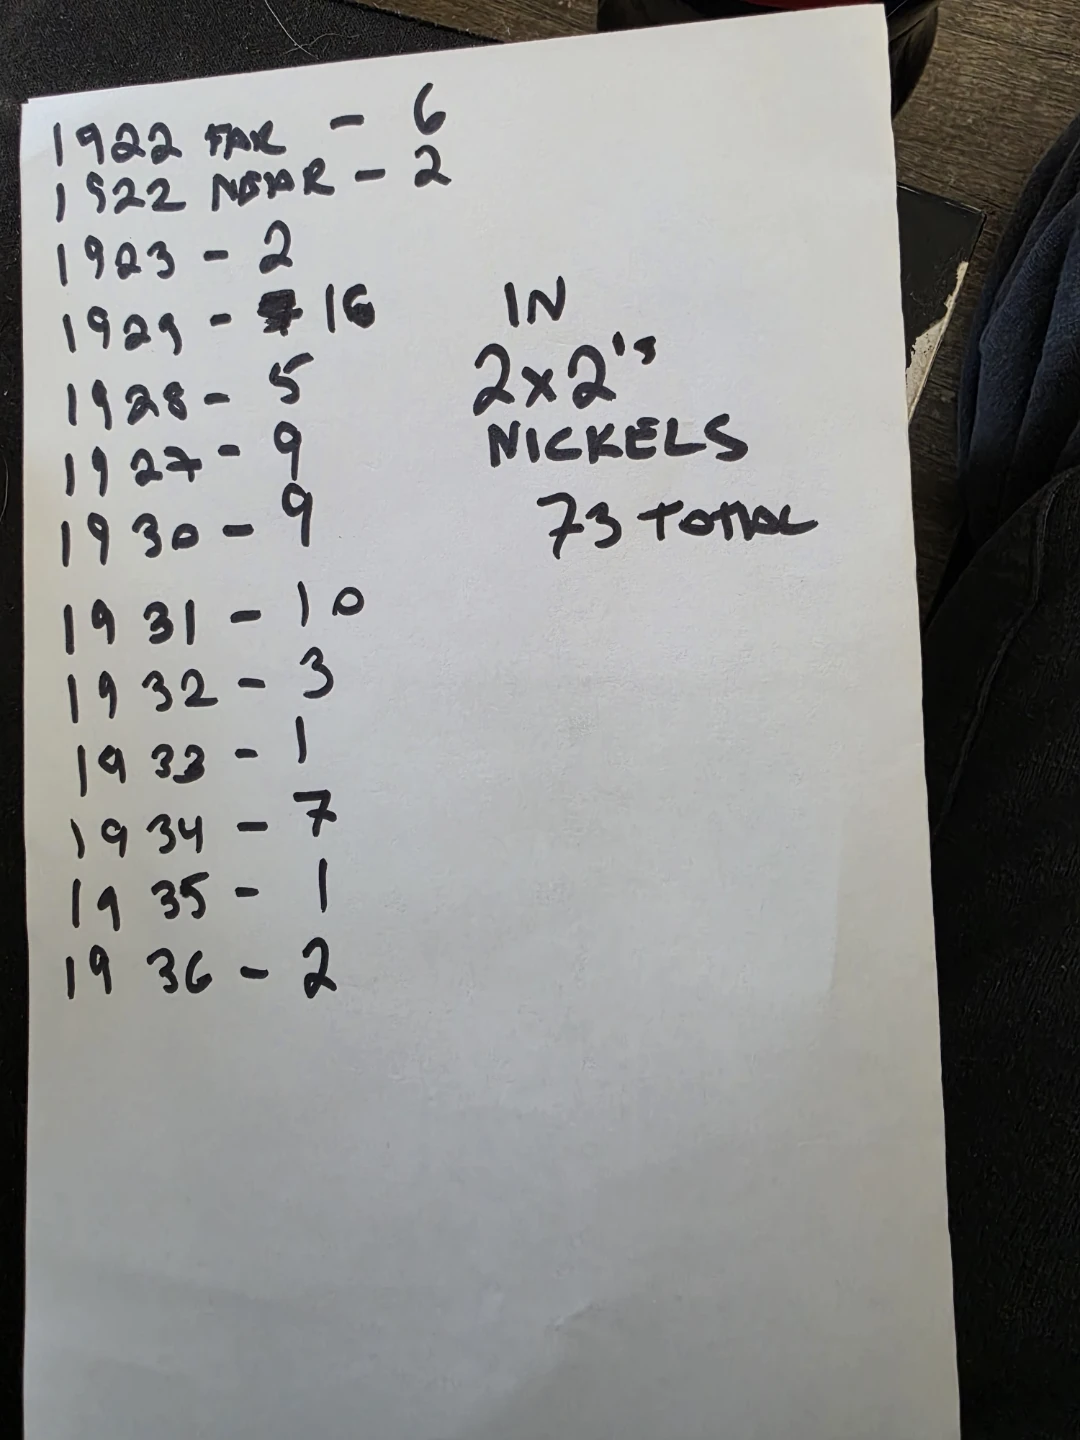 1922 FAR - 6
1922 NEAR - 2
1923 - 2
1929 - 16
1928 - 5
1927 - 9
1930 - 9
1931 - 10
1932 - 3
1933 - 1
1934 - 7
1935 - 1
1936 - 2
IN
2x2's
NICKELS
73 TOTAL